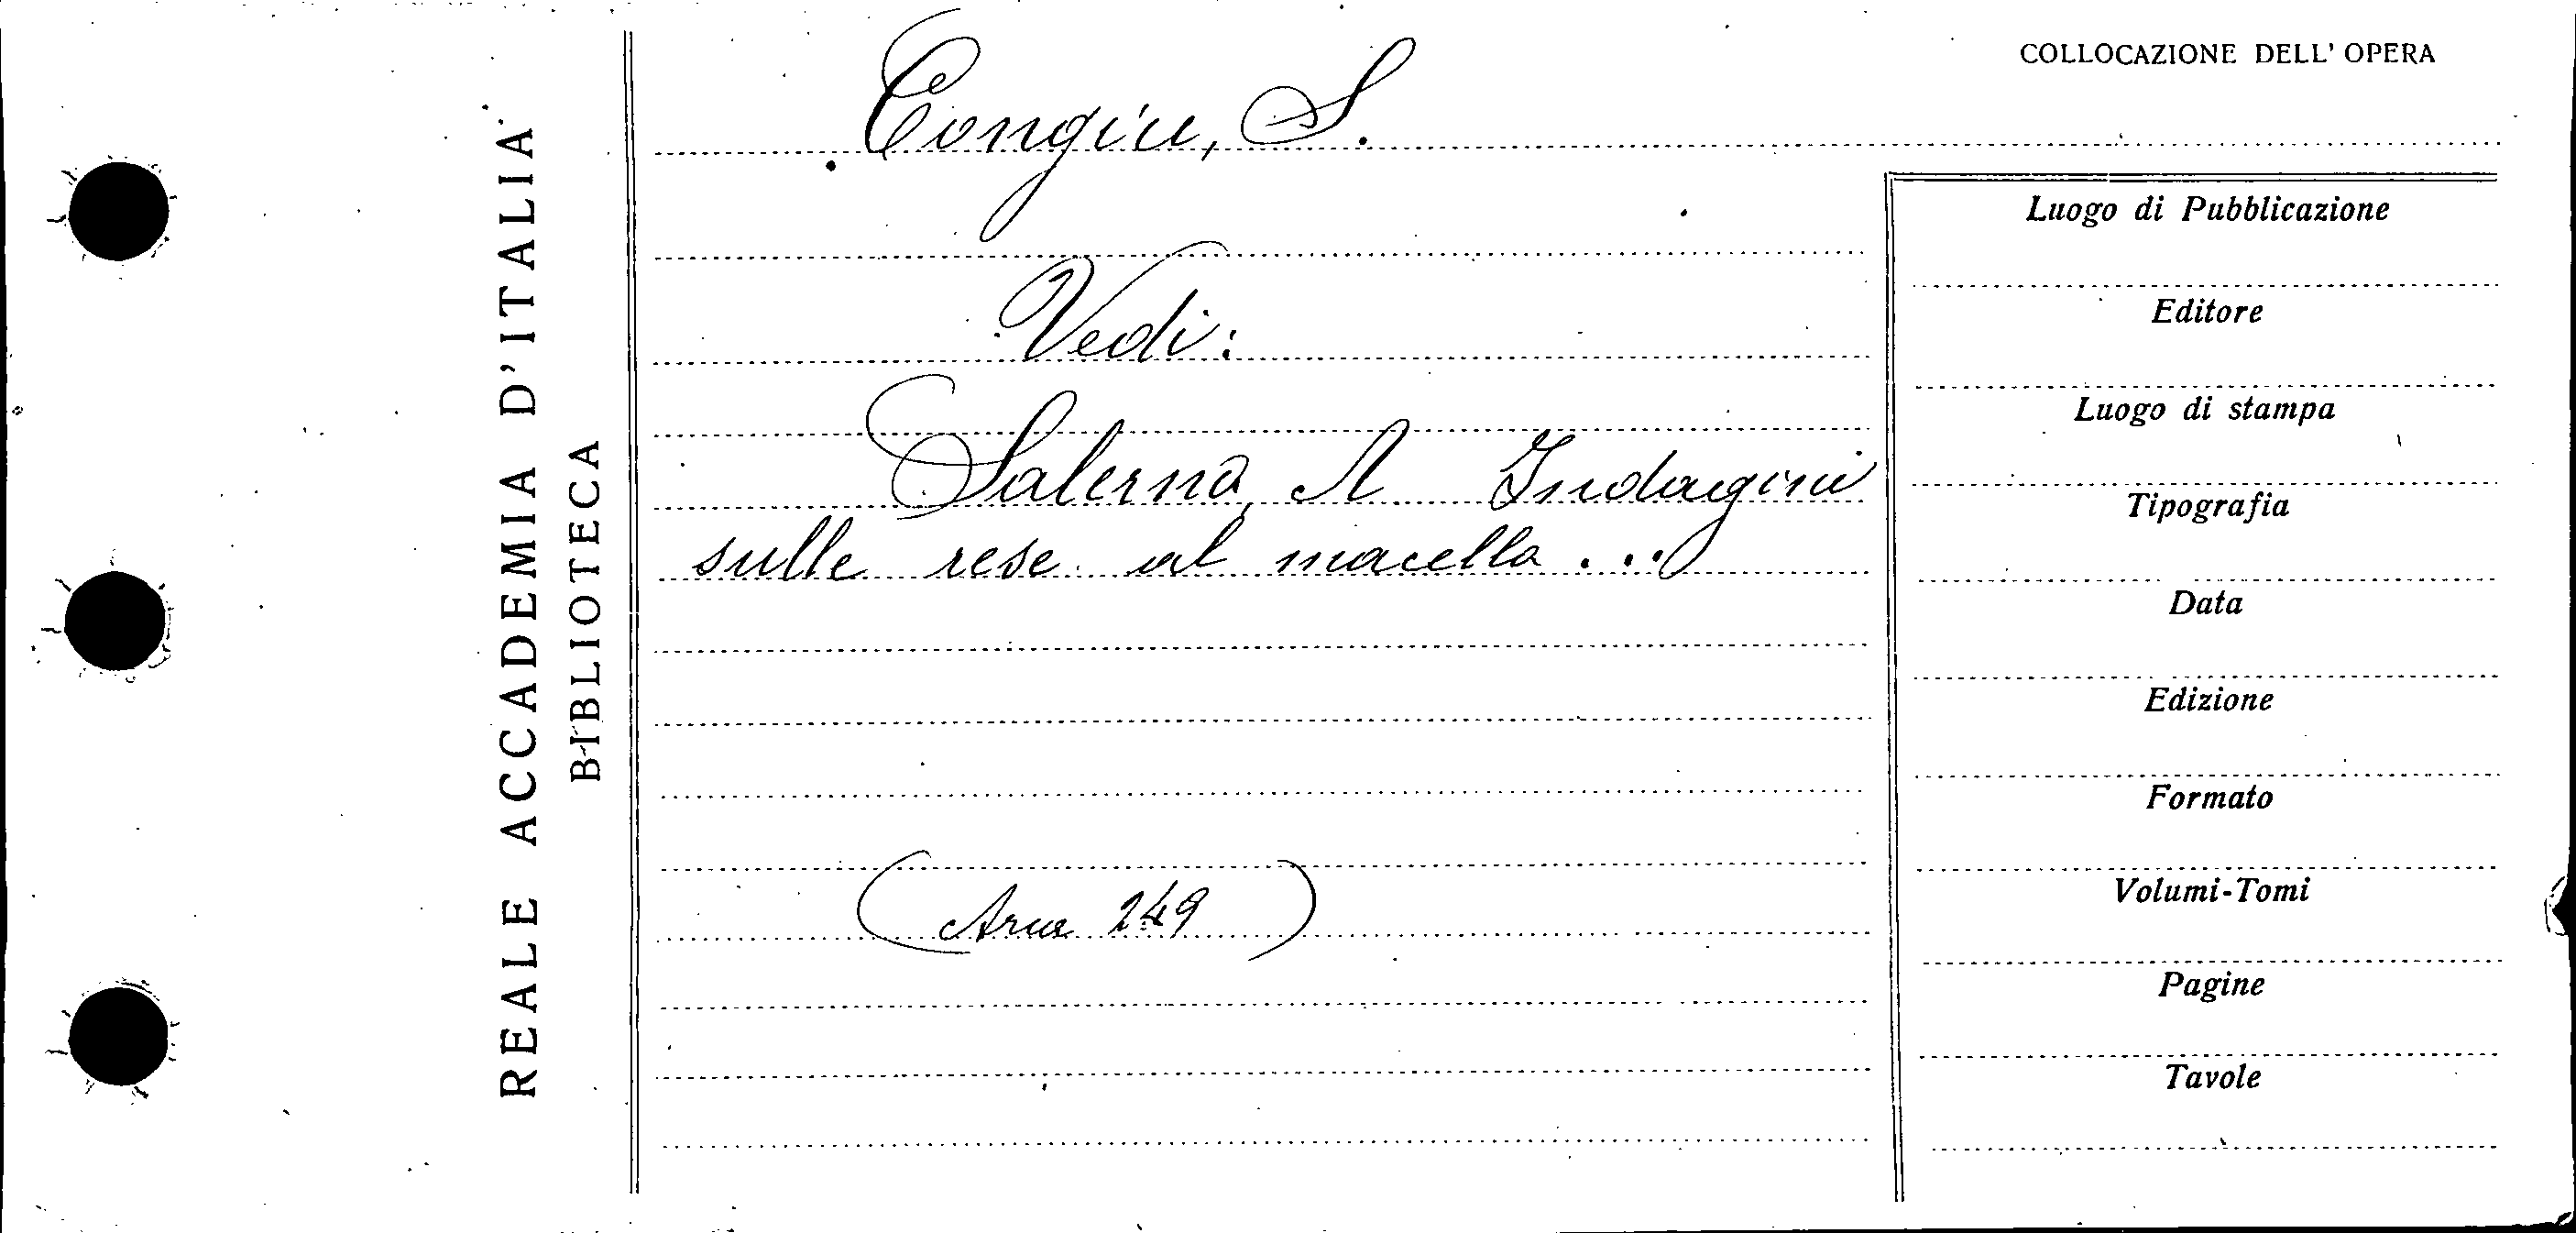 REALE ACCADEMIA D'ITALIA
BIBLIOTECA
Congiu, S.
Vedi:
Salerno, A Indagini
sulle rese al macello ...
(Arm 249)
COLLOCAZIONE DELL' OPERA
Luogo di Pubblicazione
Editore
Luogo di stampa
Tipografia
Data
Edizione
Formato
Volumi-Tomi
Pagine
Tavole